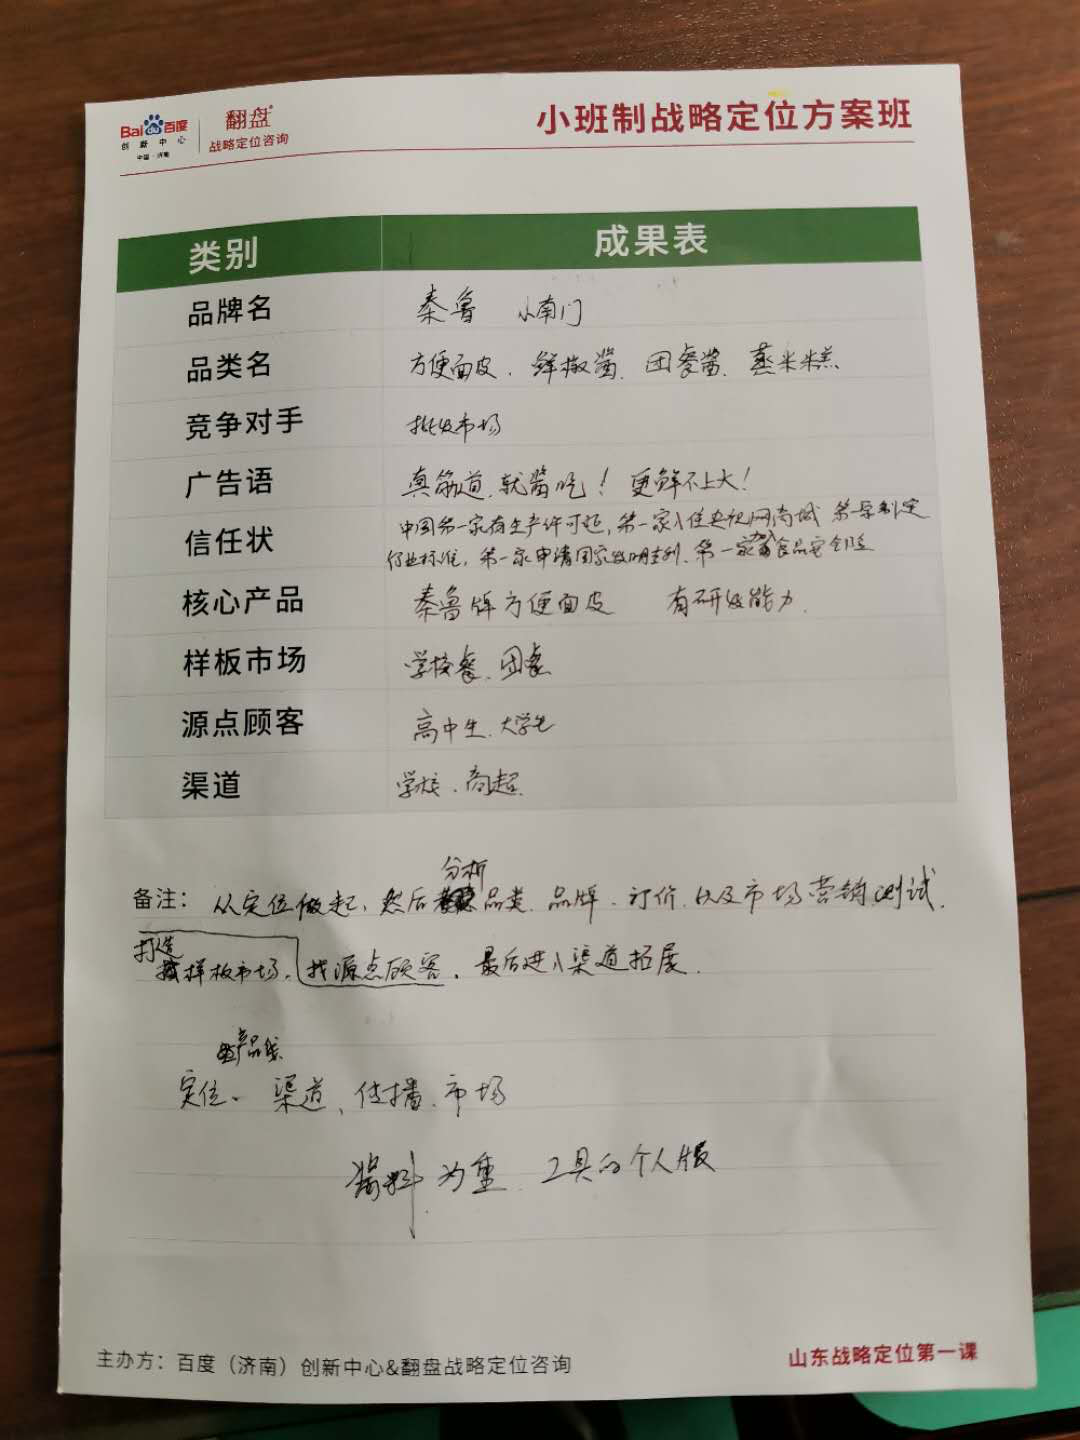 Bai du 百度
创新中心
中国·济南
翻盘
战略定位咨询
小班制战略定位方案班
类别 成果表
品牌名 秦鲁 小南门
品类名 方便面皮、鲜椒酱、团餐酱、蒸米糕
竞争对手 批发市场
广告语 真筋道,就酱吃！更鲜不上火！
信任状 中国第一家有生产许可证,第一家入住央视网商城 第一家制定
行业标准,第一家申请国家发明专利、第一家加入食品安全险
核心产品 秦鲁牌方便面皮 有研发能力.
样板市场 学校餐、团餐
源点顾客 高中生、大学生
渠道 学校、商超
分析
备注：从定位做起,然后品类、品牌、订价,以及市场营销测试.
打造
样板市场。找源点顾客,最后进入渠道拓展.
产品线
定位、渠道、传播、市场
酱料为重.工具的个人版
主办方：百度（济南）创新中心&翻盘战略定位咨询
山东战略定位第一课